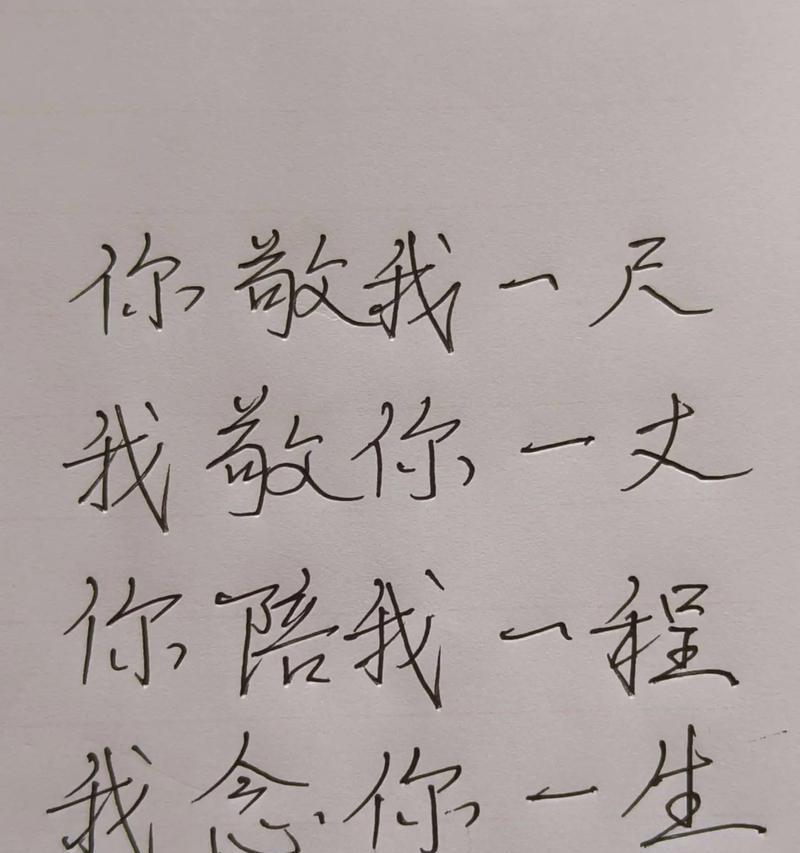 你敬我一尺
我敬你一丈
你陪我一程
我念你一生